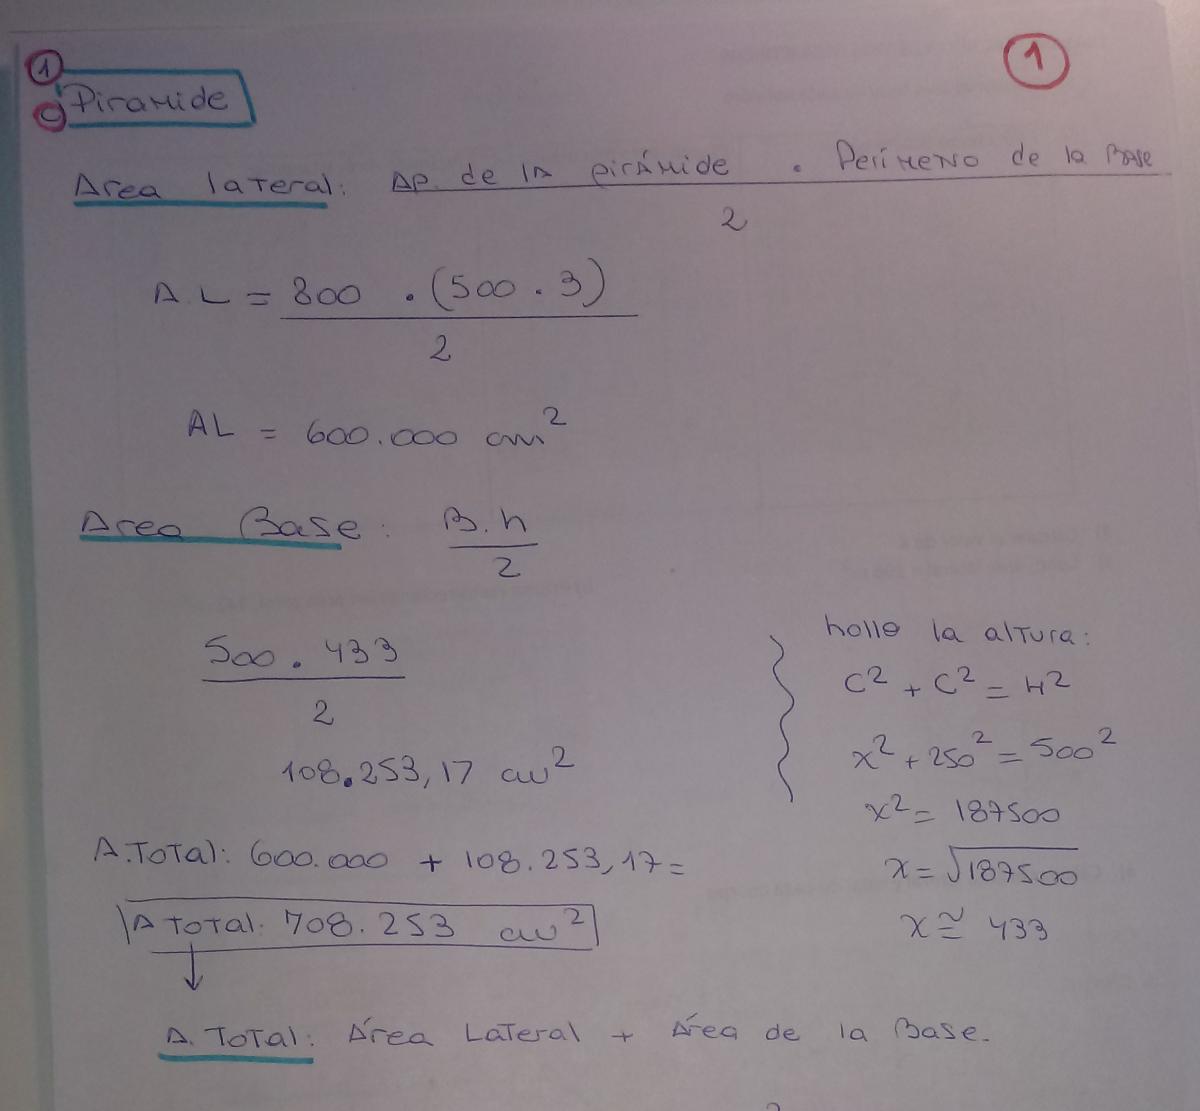 1
1
Piramide
c
Area lateral: Ap. de la pirámide . Perímeno de la Base
2
A.L = 800 . (500 . 3)
2
AL = 600.000 cm²
Area Base: B.h
2
500 . 433
2
108.253,17 cm²
hallo la altura:
c² + c² = H²
x² + 250² = 500²
x² = 187500
x = √187500
x ≅ 433
A.Total: 600.000 + 108.253,17 =
A Total: 708.253 cm²
A. Total: Área Lateral + Área de la Base.